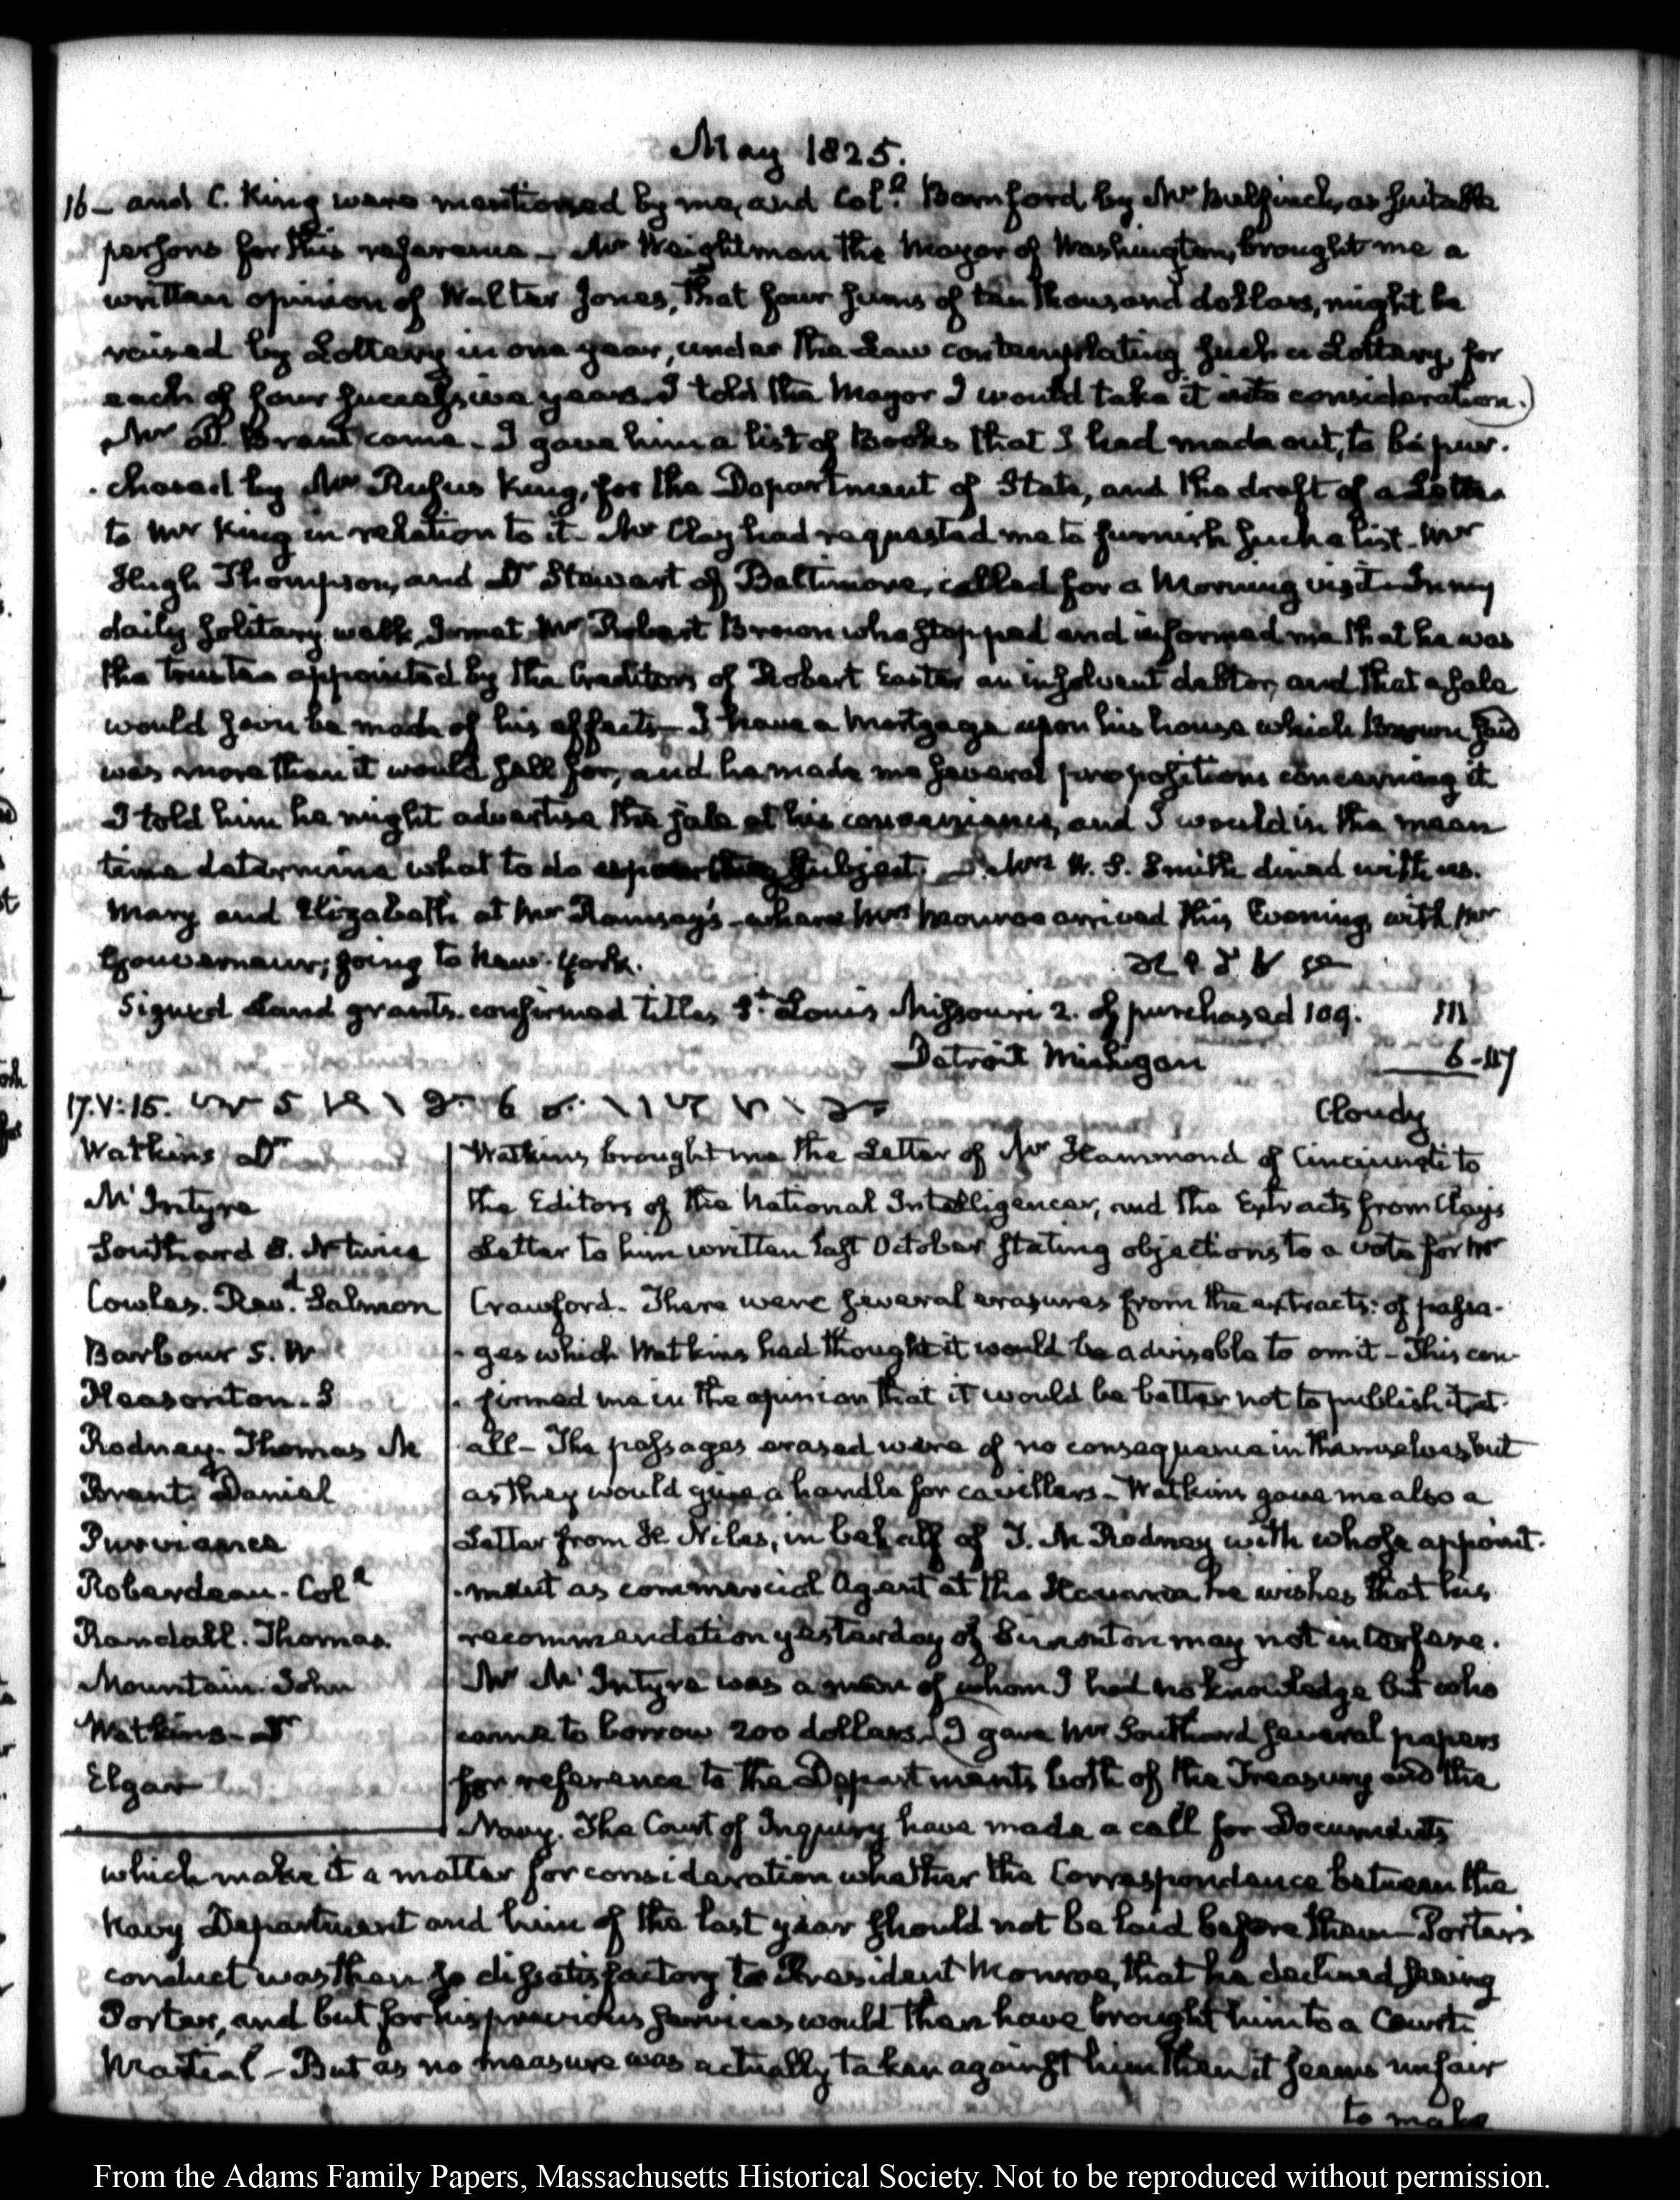 May 1825.
16 – and C. King were mentioned by me, and Col.l Bomford by Mr Bulfinch, as suitable
persons for this reference – Mr Weightman the Mayor of Washington, brought me a
written opinion of Walter Jones, that four sums of ten thousand dollars, might be
raised by Lottery in one year, under the Law contemplating such a Lottery, for
each of four successive years. I told the Mayor I would take it into consideration.)
Mr D. Brent came – I gave him a list of Books that I had made out, to be pur-
-chased by Mr Rufus King, for the Department of State, and the draft of a Letter
to Mr King in relation to it – Mr Clay had requested me to furnish such a list – Mr
Hugh Thompson, and Dr Stewart of Baltimore, called for a Morning visit – In my
daily solitary walk, I met Mr Robert Brown who stopped and informed me that he was
the trustee appointed by the Creditors of Robert Easter an insolvent debtor, and that a sale
would soon be made of his effects – I have a Mortgage upon his house which Brown said
was more than it would sell for, and he made me several propositions concerning it
I told him he might advertise the sale at his convenience, and I would in the mean
time determine what to do subject. Mrs W. S. Smith dined with us.
Mary and Elizabeth at Mr Ramsay's – where Mrs Monroe arrived this Evening, with Mr
Gouverneur; going to New-York.
Signed Land grants. confirmed titles St Louis Missouri 2. of purchased 109. 111
Detroit Michigan 6 – 117
17. V: 15. Cloudy
Watkins Dr
McIntyre
Southard S. N twice
Cowles. Revd. Salmon
Barbour S. W
Pleasonton. S
Rodney. Thomas M
Brent. Daniel
Purviance
Roberdeau. Coll
Randall. Thomas.
Mountain. John
Watkins – Dr
Elgar
Watkins brought me the Letter of Mr Hammond of Cincinnati to
the Editors of the National Intelligencer, and the Extracts from Clay's
Letter to him written last October stating objections to a vote for Mr
Crawford. There were several erasures from the extracts: of passa-
-ges which Watkins had thought it would be advisable to omit – This con-
-firmed me in the opinion that it would be better not to publish it at
all – The passages erased were of no consequence in themselves but
as they would give a handle for cavillers – Watkins gave me also a
Letter from H. Niles, in behalf of T. M. Rodney with whose appoint-
-ment as commercial Agent at the Havanna he wishes that his
recommendation yesterday of Simonton may not interfere.
Mr McIntyre was a man of whom I had no knowledge but who
came to borrow 200 dollars. (I gave Mr Southard several papers
for reference to the Departments both of the Treasury and the
Navy. The Court of Inquiry have made a call for Documents
which make it a matter for consideration whether the Correspondence between the
Navy Department and him of the last year should not be laid before them – Porter's
conduct was then so dissatisfactory to President Monroe, that he declined seeing
Porter, and but for his previous services would then have brought him to a Court
Martial – But as no measure was actually taken against him then it seems unfair
to make
From the Adams Family Papers, Massachusetts Historical Society. Not to be reproduced without permission.